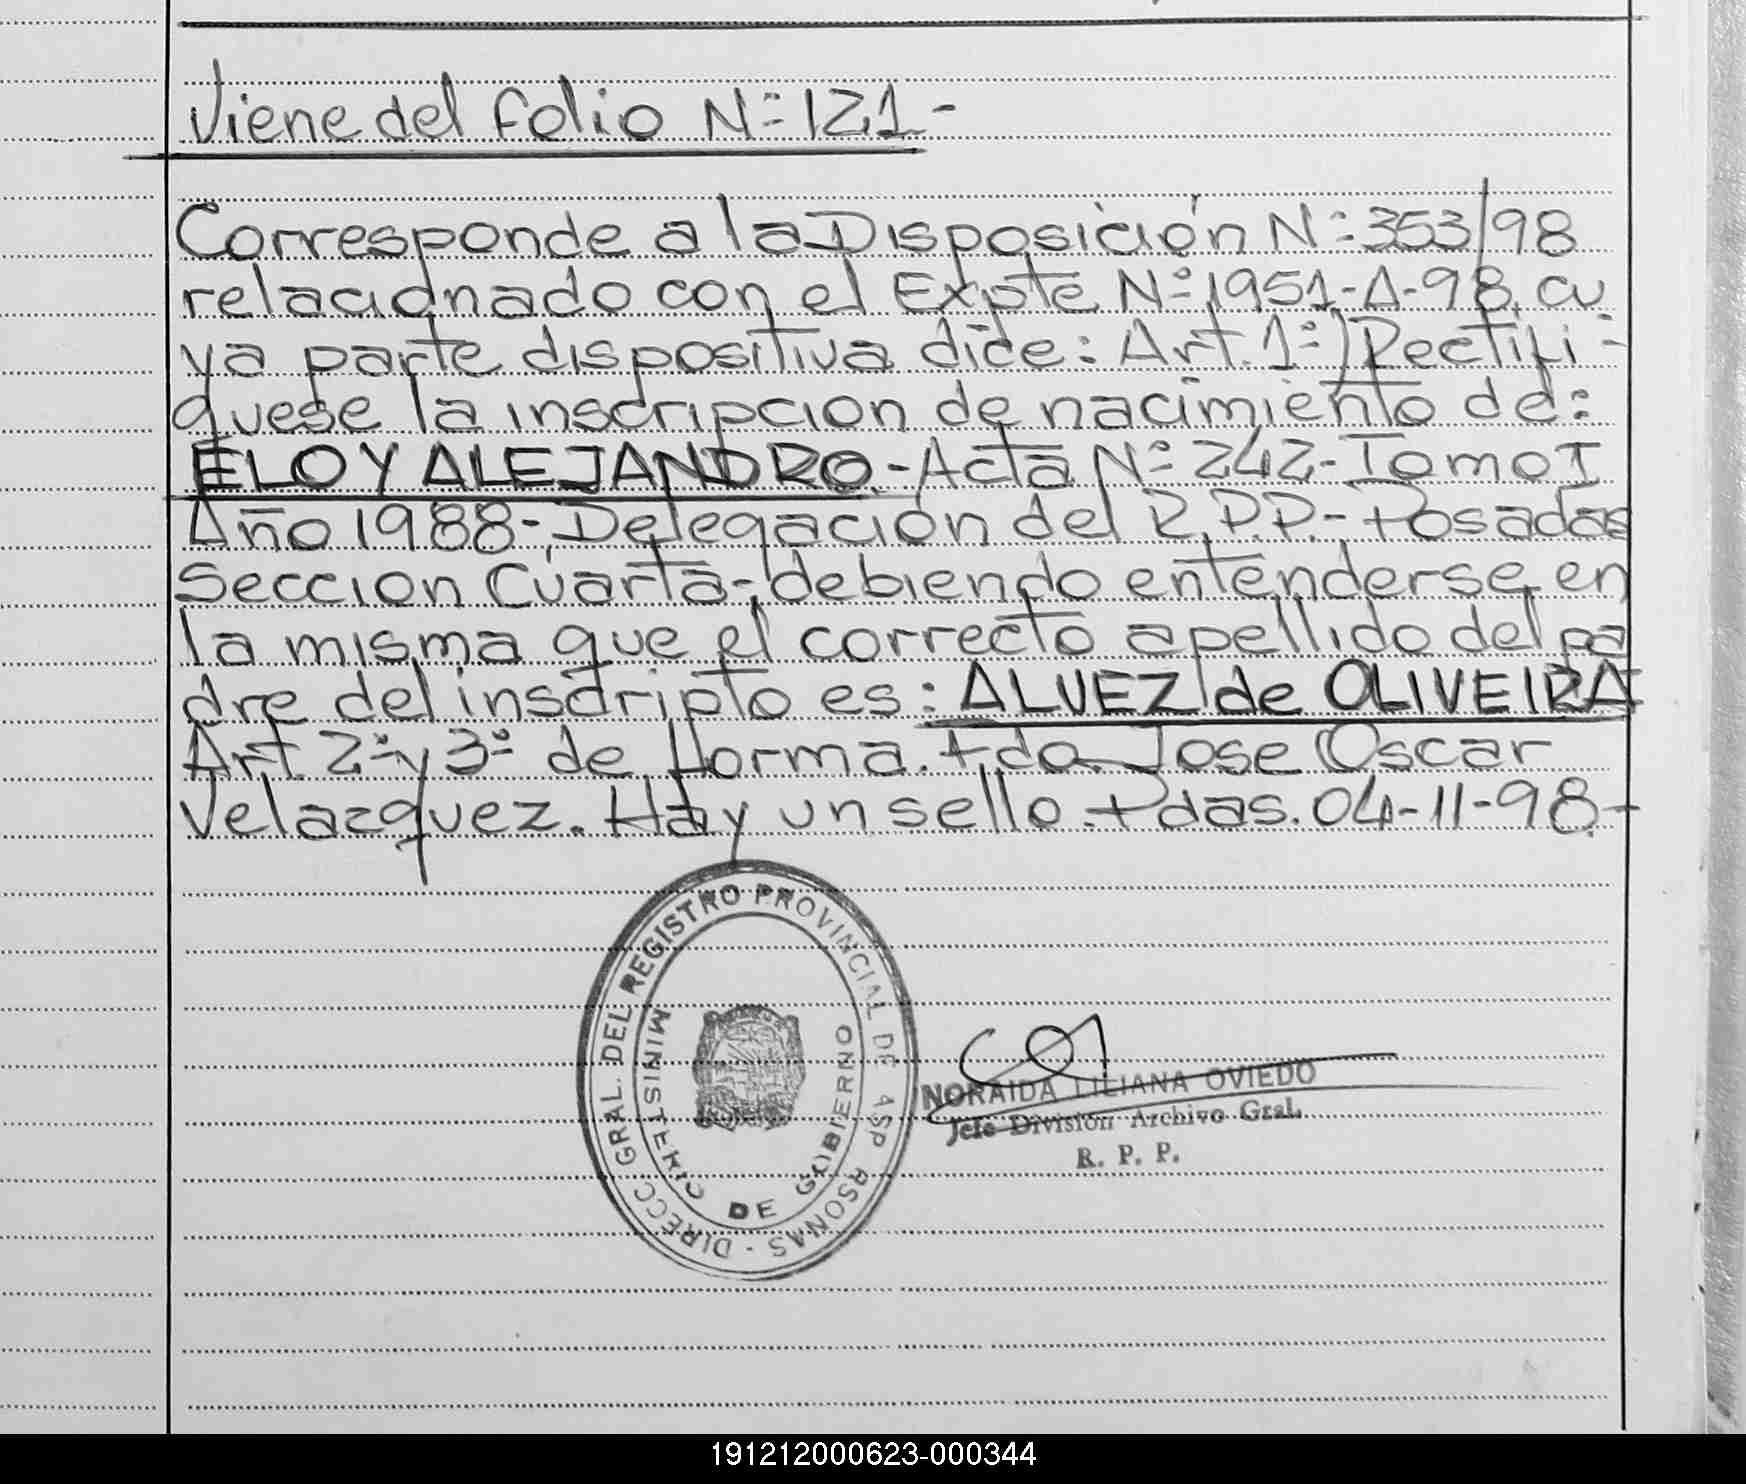 Viene del folio Nº 121-
Corresponde a la Disposición Nº 353/98
relacionado con el Expte Nº 1951-A-98. cu
ya parte dispositiva dice: Art. 1º) Rectifi-
quese la inscripcion de nacimiento de:
ELOY ALEJANDRO.-Acta Nº 242-Tomo I
Año 1988-, Delegación del R.P.P.- Posadas
Seccion Cuarta-, debiendo entenderse en
la misma que el correcto apellido del pa
dre del inscripto es: ALVEZ de OLIVEIRA
Art. 2º y 3º de Norma. Fdo. Jose Oscar
Velazquez. Hay un sello. Pdas. 04-11-98-
DIRECC GRAL. DEL REGISTRO PROVINCIAL DE ASP RSONAS -
MINISTERIO DE GOBIERNO
NORAIDA LILIANA OVIEDO
Jefe División Archivo Gral.
R. P. P.
191212000623-000344